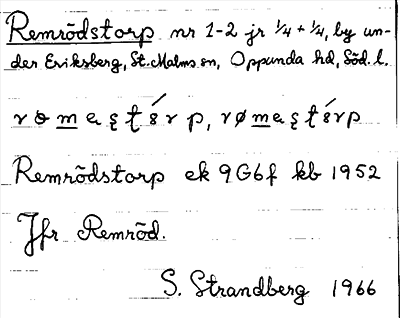 Remrödstorp nr 1-2 jr 1/4 + 1/4, by un-
der Eriksberg, St. Malms sn, Oppunda hd, Söd. l.
Remrödstorp ek 9G6f kb 1952
Jfr Remröd.
S. Strandberg 1966